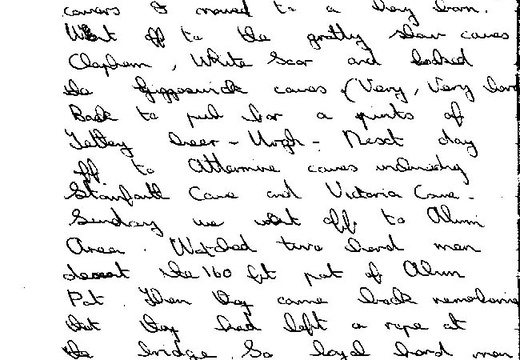 cavers I moved to a hay barn.
Went off to the grotty show caves
Clapham, White Scar and looked
the Giggleswick caves (Very, Very bor
Back to pub for a pints of
Tetley beer - Urgh - Next day
off to Attermire caves including
Stainforth Cave and Victoria Cave.
Sunday we went off to Alum
Area. Watched two hard men
descent the 160 ft pot of Alum
Pot. Then they came back remembering
that they had left a rope at
the bridge. So loyal hard men